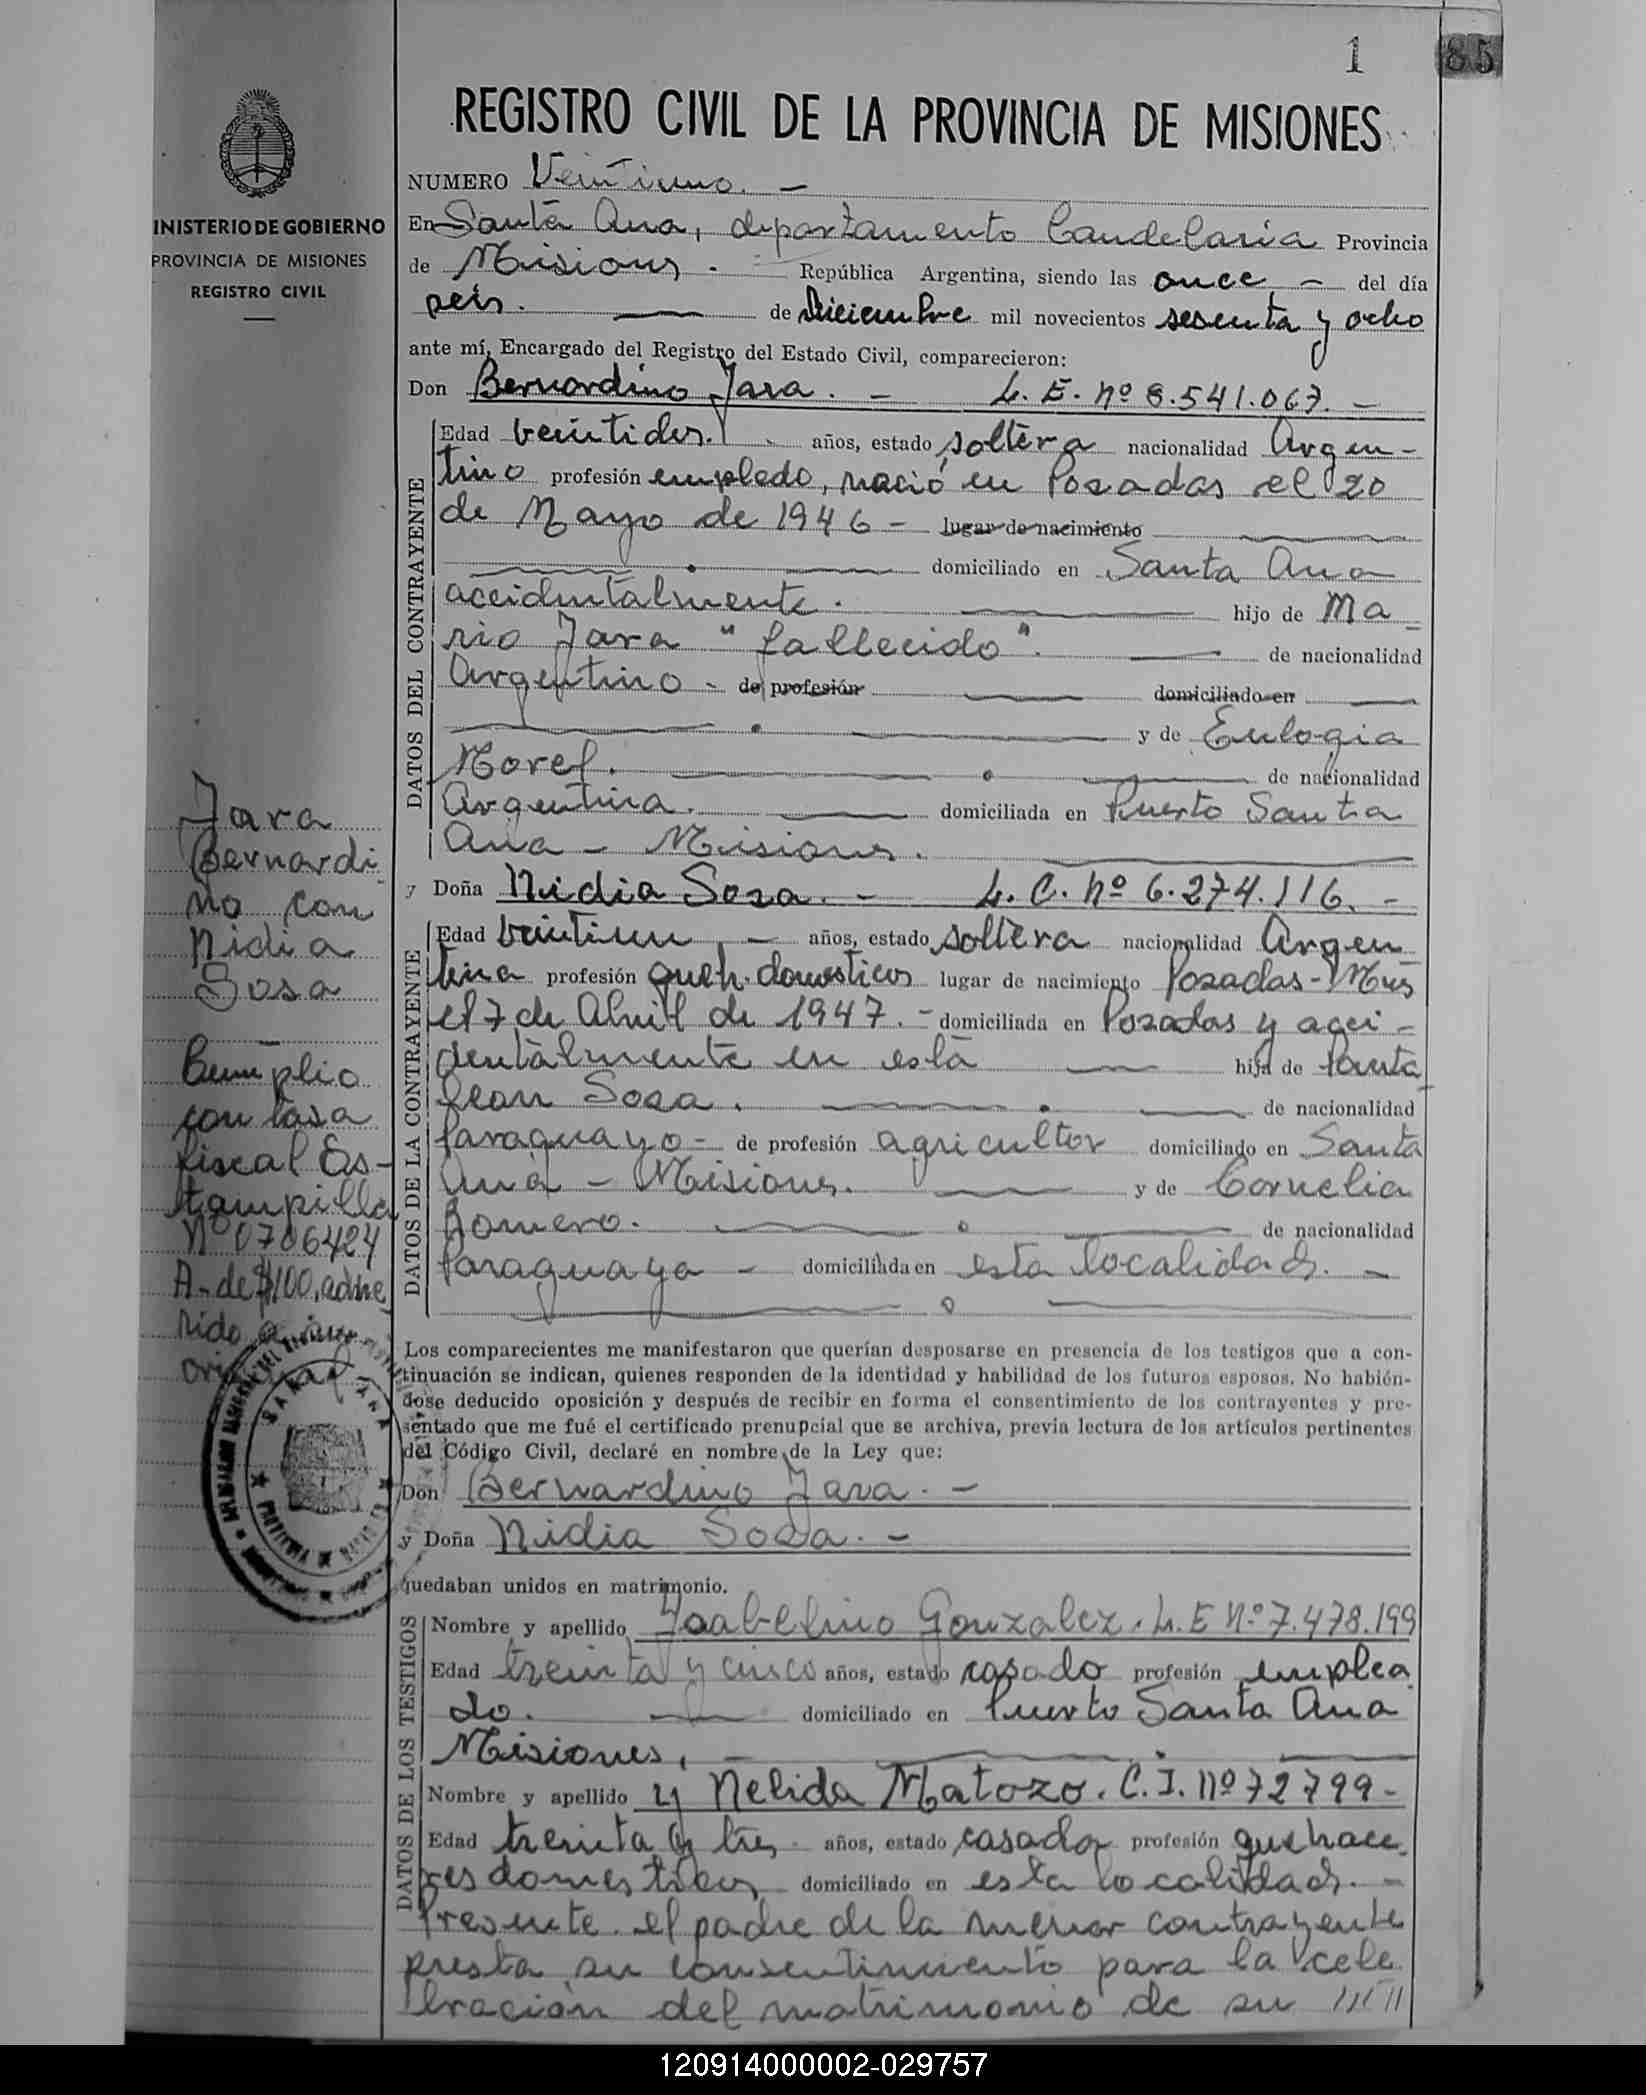 1 85
REGISTRO CIVIL DE LA PROVINCIA DE MISIONES
INISTERIO DE GOBIERNO
PROVINCIA DE MISIONES
REGISTRO CIVIL
NUMERO Veintiuno. -
En Santa Ana, departamento Candelaria Provincia
de Misiones - República Argentina, siendo las once - del día
seis. de Diciembre mil novecientos sesenta y ocho
ante mí, Encargado del Registro del Estado Civil, comparecieron:
Don Bernardino Jara. - L. E. nº 8.541.067. -
DATOS DEL CONTRAYENTE
Edad veintidos. años, estado soltero nacionalidad Argen-
tino profesión empledo, nació en Posadas el 20
de Mayo de 1946 - lugar de nacimiento
domiciliado en Santa Ana
accidentalmente. hijo de Ma_
rio Jara "fallecido". de nacionalidad
Argentino - de profesión domiciliado en
y de Eulogia
Morel. de nacionalidad
Argentina. domiciliada en Puerto Santa
Ana - Misiones.
y Doña Nidia Sosa. - L. C. nº 6.274.116. -
DATOS DE LA CONTRAYENTE
Edad veintiun - años, estado soltera nacionalidad Argen_
tina profesión queh. domesticos lugar de nacimiento Posadas - Mnes
el 7 de Abril de 1947. - domiciliada en Posadas y acci-
dentalmente en esta hija de Panta_
leon Sosa. de nacionalidad
Paraguayo - de profesión agricultor domiciliado en Santa
Ana - Misiones. y de Cornelia
Romero. de nacionalidad
Paraguaya - domiciliada en esta localidad. -
Jara
Bernardi_
no con
Nidia
Sosa
Cumplio
con tasa
fiscal Es-
tampilla
Nº 0706424
A- de $100, adhe_
rido a
original
SANTA ANA
PROVINCIA
Los comparecientes me manifestaron que querían desposarse en presencia de los testigos que a con-
tinuación se indican, quienes responden de la identidad y habilidad de los futuros esposos. No habién-
dose deducido oposición y después de recibir en forma el consentimiento de los contrayentes y pre-
sentado que me fué el certificado prenupcial que se archiva, previa lectura de los artículos pertinentes
del Código Civil, declaré en nombre de la Ley que:
Don Bernardino Jara. -
y Doña Nidia Sosa. -
quedaban unidos en matrimonio.
DATOS DE LOS TESTIGOS
Nombre y apellido Ysabelino Gonzalez. L. E Nº 7.478.199
Edad treinta y cinco años, estado casado profesión emplea_
do. domiciliado en Puerto Santa Ana
Misiones, -
Nombre y apellido y Nelida Matozo. C. I. nº 72799 -
Edad treinta y tres - años, estado casada profesión quehace_
res domesticos domiciliado en esta localidad. -
Presente el padre de la menor contrayente
presta su consentimiento para la cele_
bración del matrimonio de su /////
120914000002-029757